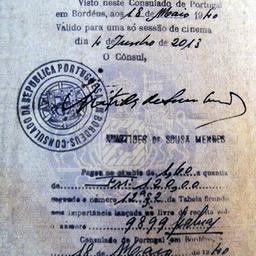 Visto neste Consulado de Portugal
em Bordéus, aos 18 de Maio 1940
Válido para uma só sessão de cinema
dia 4 de Junho de 2013
O Cônsul,
CONSULADO DA REPUBLICA PORTUGUESA BORDEUS
ARISTIDES DE SOUSA MENDES
Pagou ao câmbio de 1,40 a quantia
de
segundo o número da Tabela ficando
importância lançada no livro de receita
o número 9899
Consulado de Portugal em Bordéus
18 de Maio de 1940